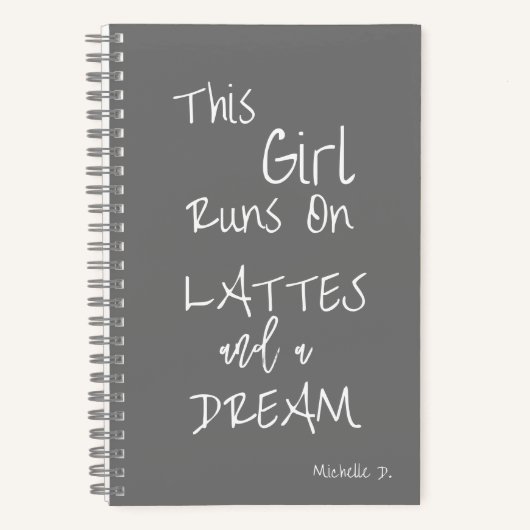 This
Girl
Runs On
LATTES
and a
DREAM
Michelle D.